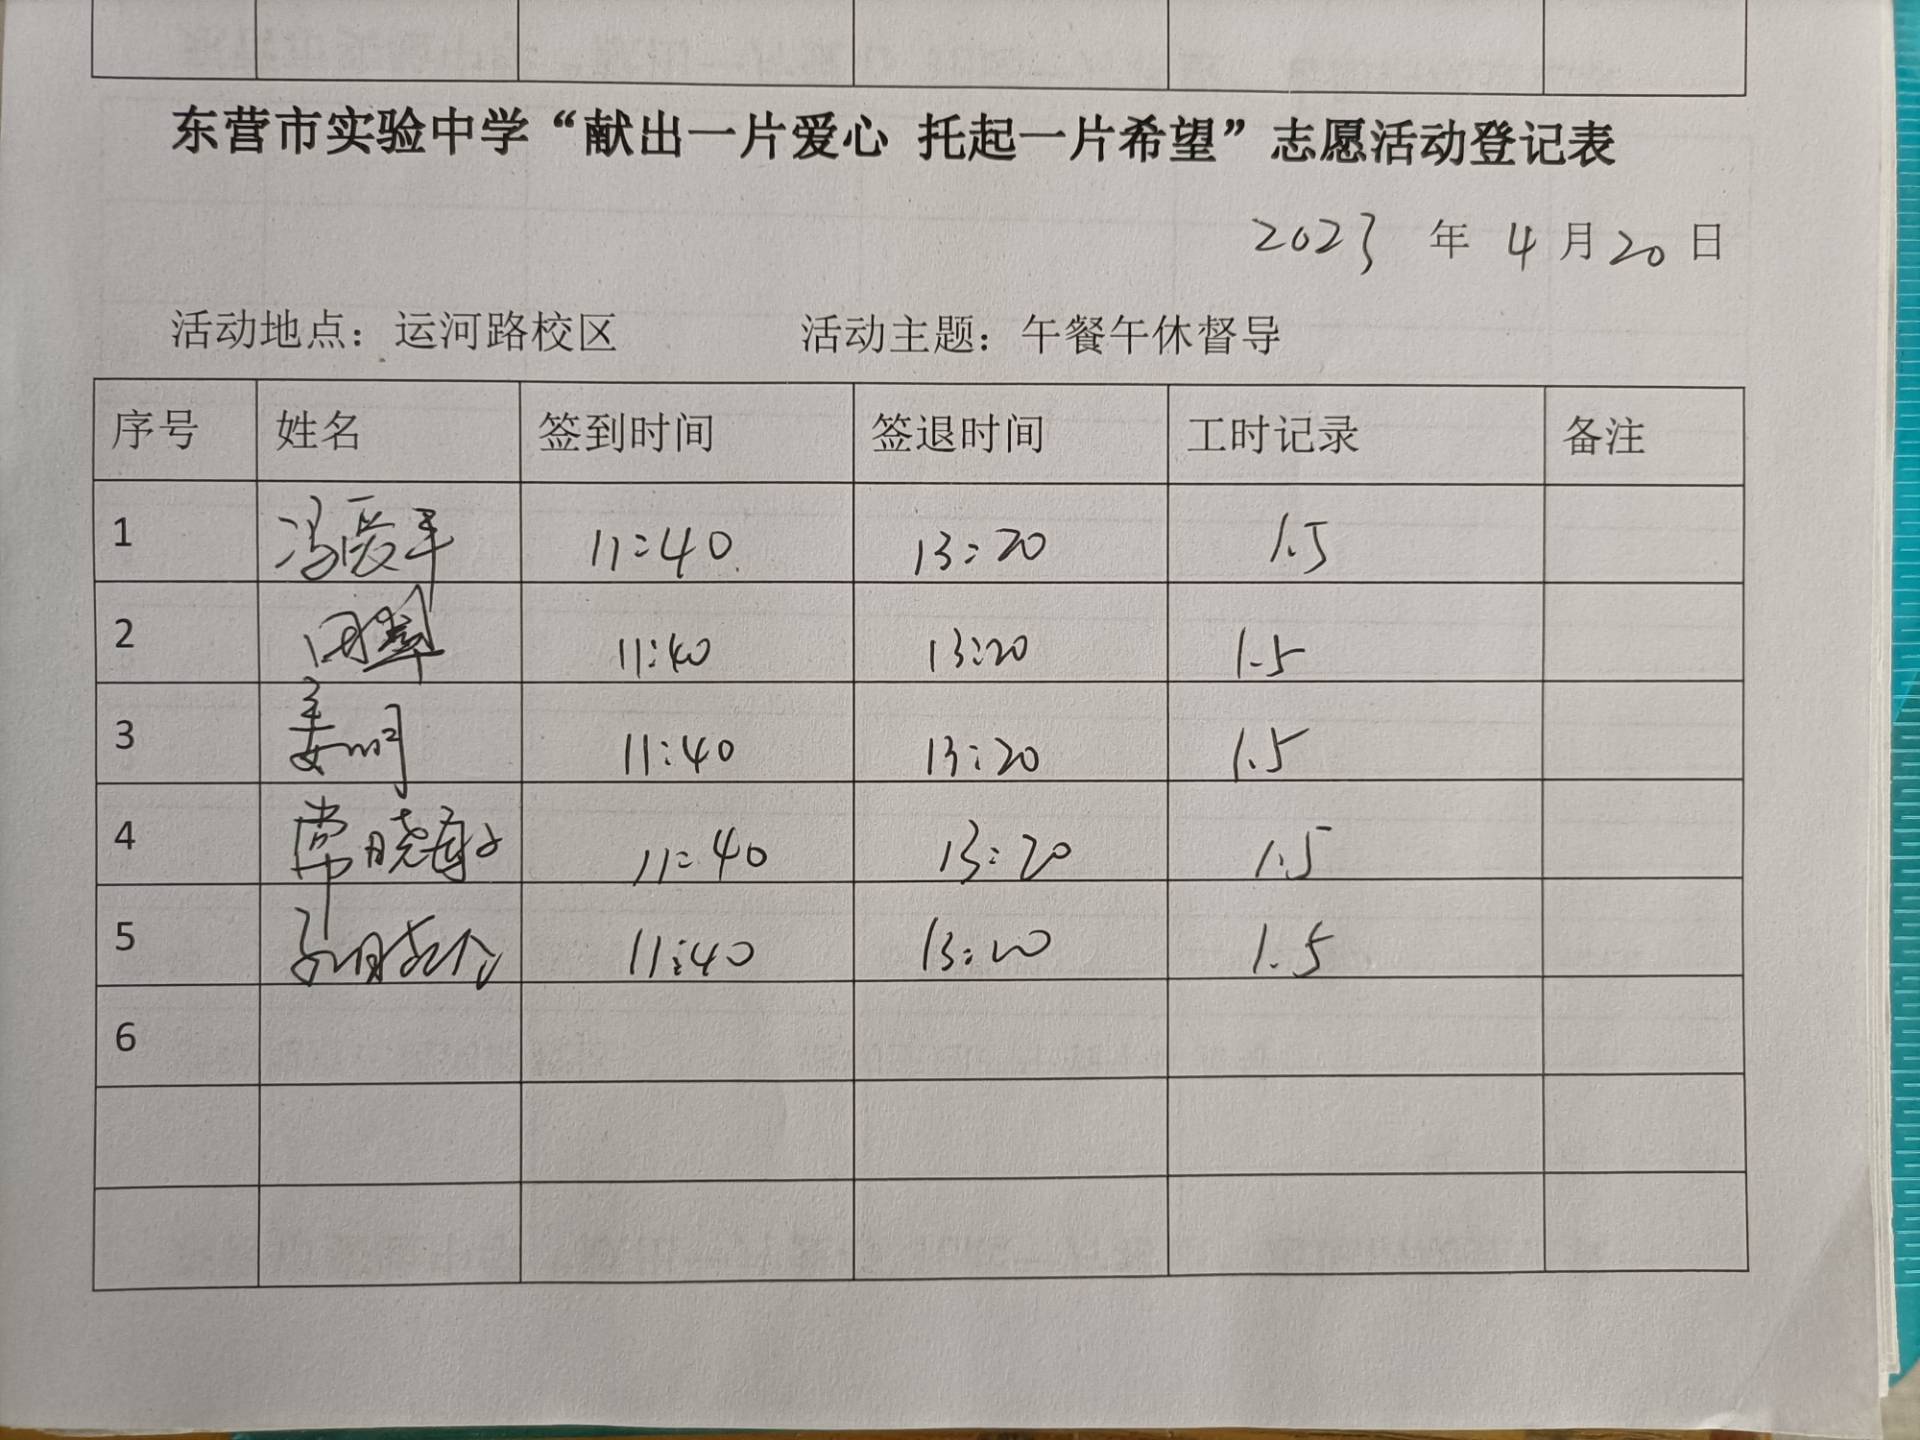 东营市实验中学“献出一片爱心 托起一片希望”志愿活动登记表
2023 年 4 月 20 日
活动地点：运河路校区 活动主题：午餐午休督导
序号 姓名 签到时间 签退时间 工时记录 备注
1 冯 11:40 13:20 1.5
2 11:40 13:20 1.5
3 姜 11:40 13:20 1.5
4 常晓 11:40 13:20 1.5
5 11:40 13:20 1.5
6